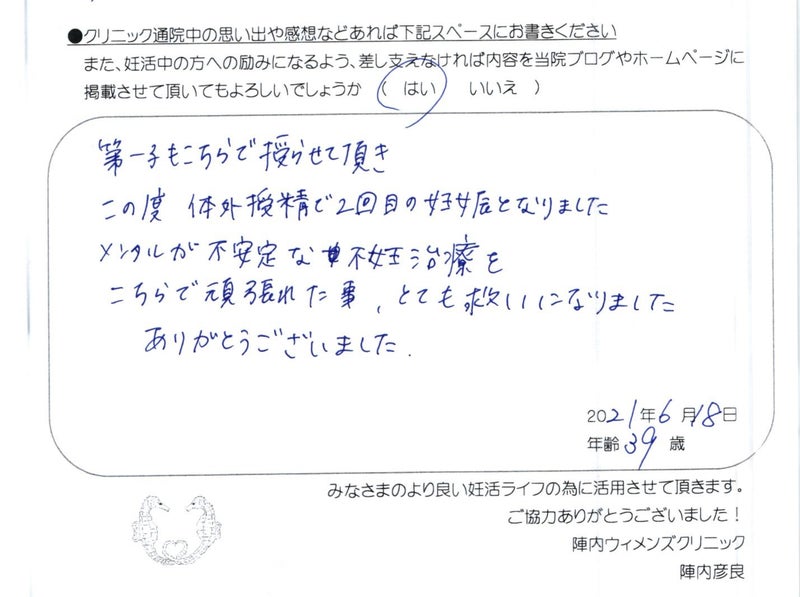 ●クリニック通院中の思い出や感想などあれば下記スペースにお書きください
また、妊活中の方への励みになるよう、差し支えなければ内容を当院ブログやホームページに
掲載させて頂いてもよろしいでしょうか （ はい　いいえ ）
第一子もこちらで授らせて頂き
この度 体外授精で2回目の妊娠となりました
メンタルが不安定な不妊治療を
こちらで頑張れた事、とても救いになりました
ありがとうございました.
2021年6月18日
年齢39歳
みなさまのより良い妊活ライフの為に活用させて頂きます。
ご協力ありがとうございました！
陣内ウィメンズクリニック
陣内彦良